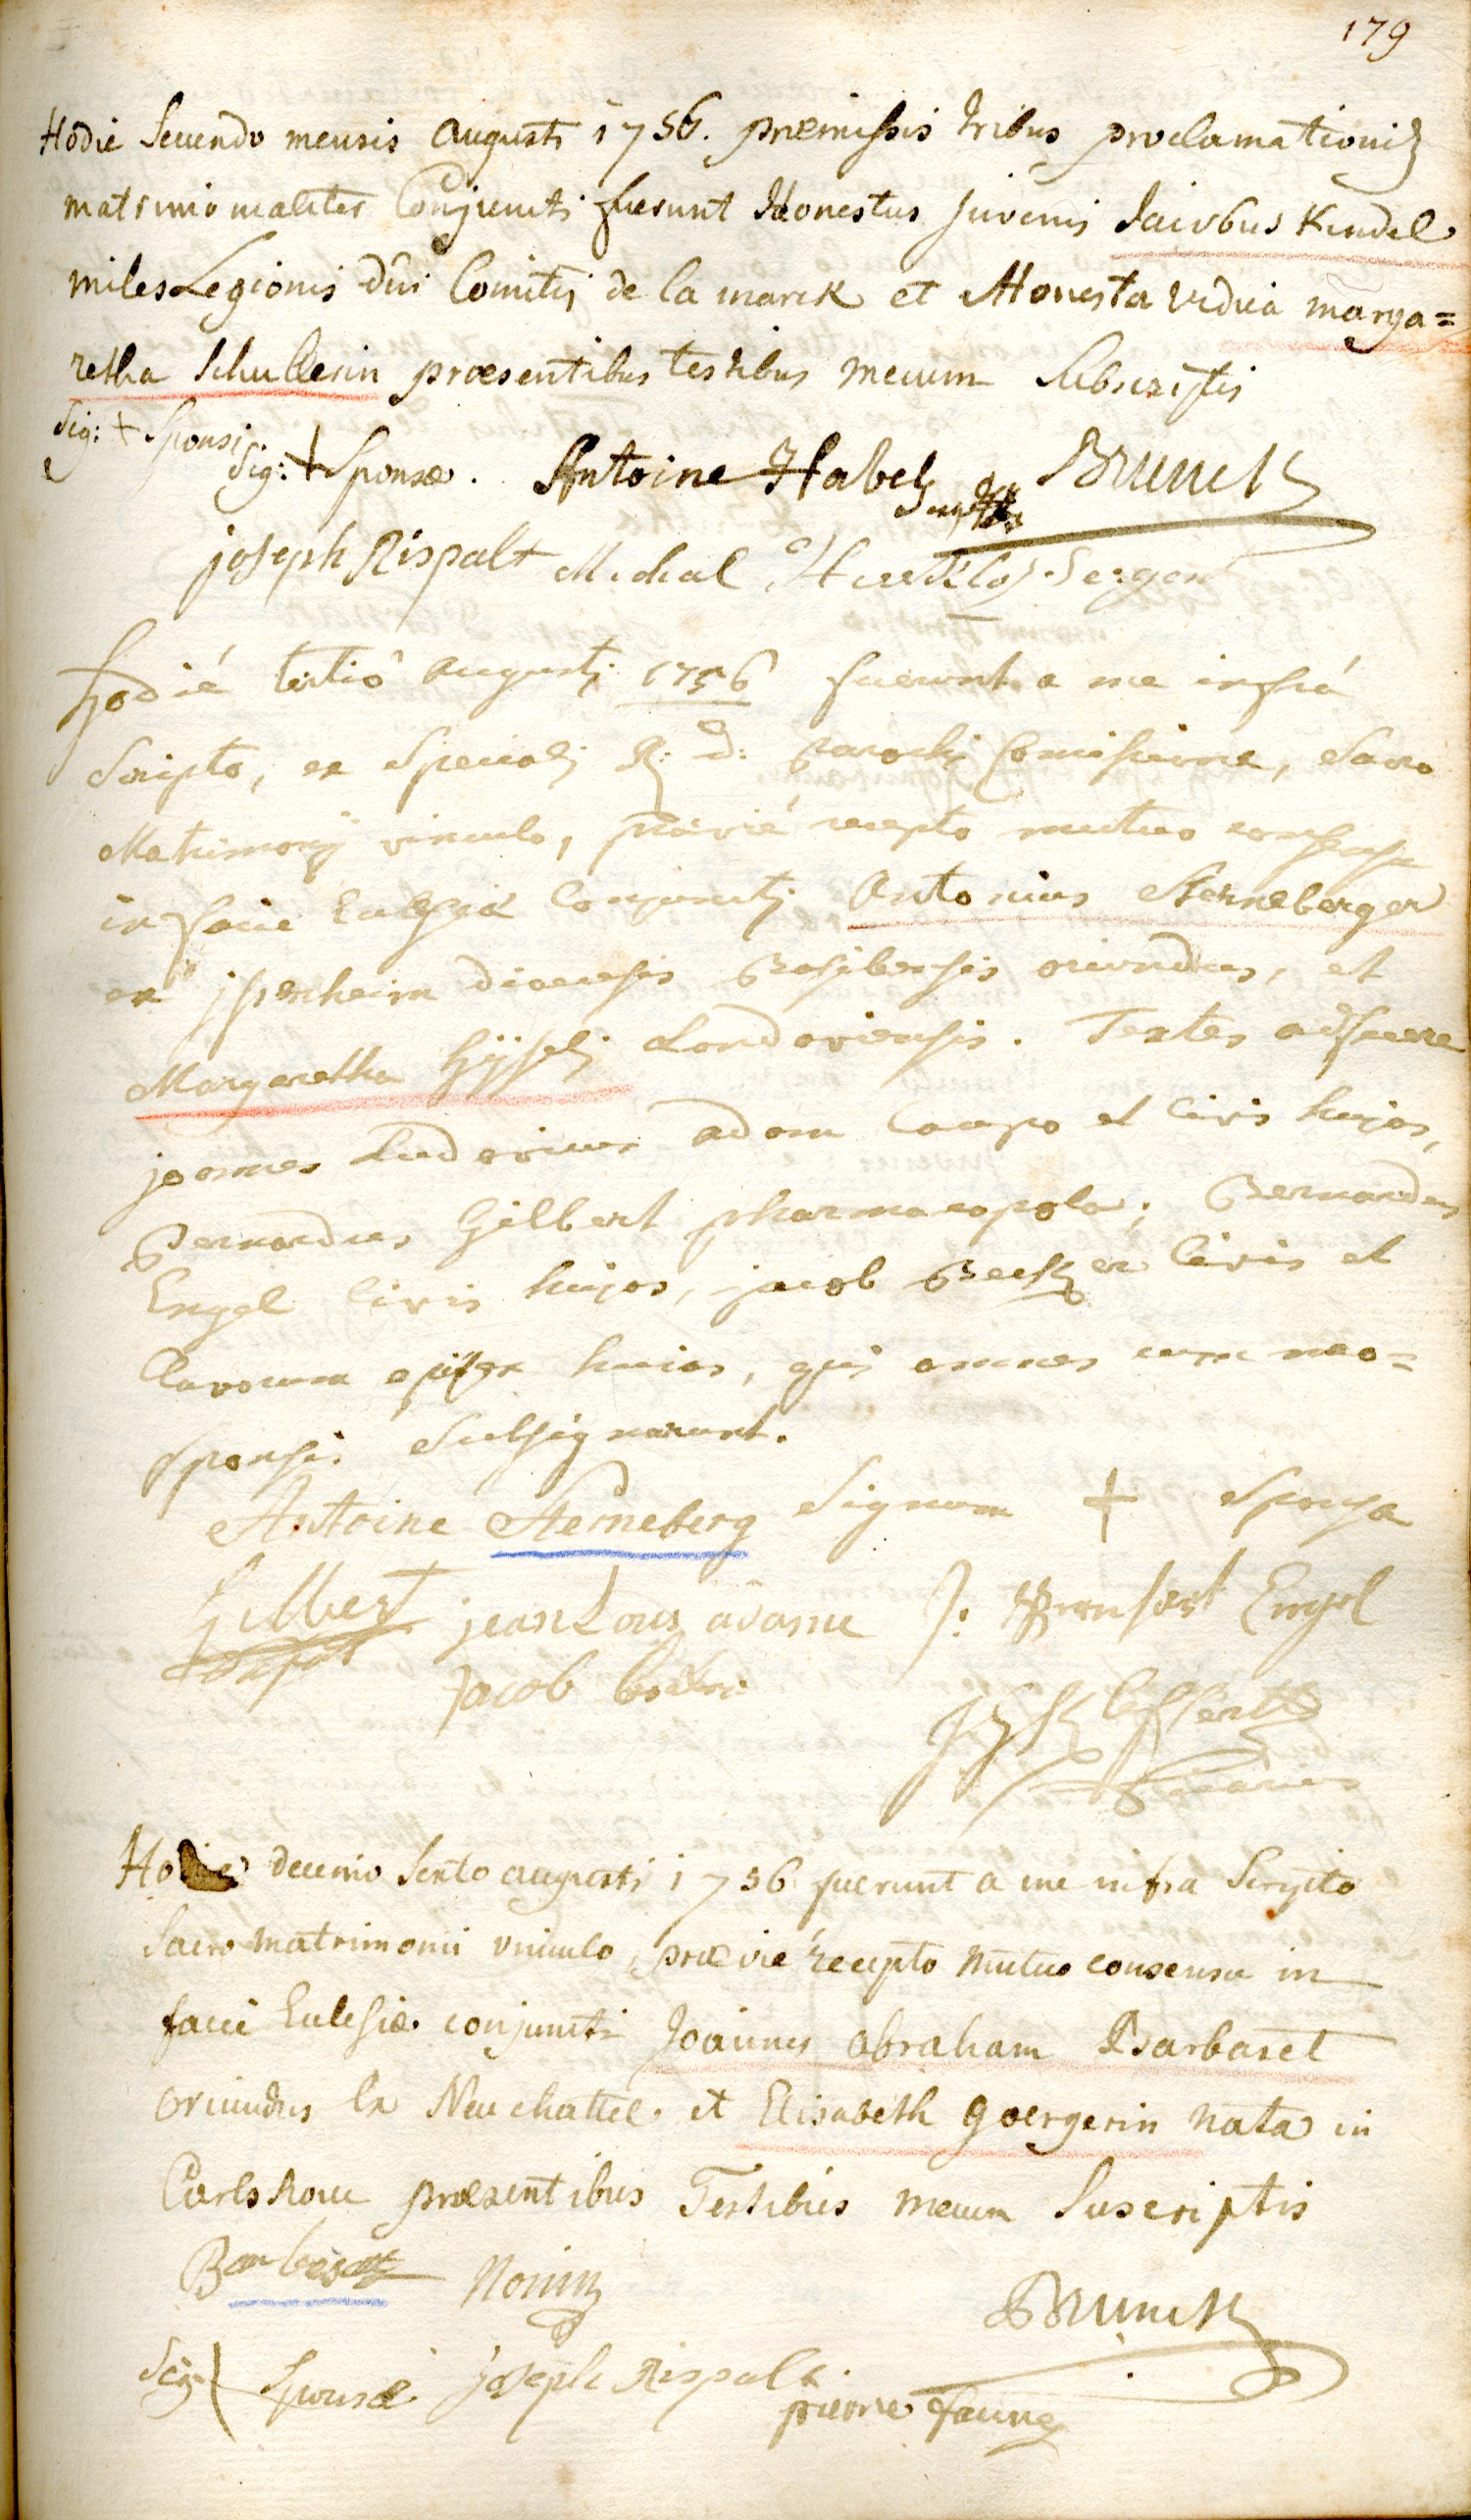 179
Hodie Secundo mensis Augusti 1756. præmissis tribus proclamationib
matrimonialiter Conjuncti fuerunt Honestus juvenis Jacobus Kindel
miles Legionis dni Comitis de la marck et Honesta vidua marga=
retha Schullerin præsentibus testibus mecum Subscriptis
Sig: + Sponsi
Sig: + Sponsæ. Antoine Habel Brunck
joseph Rispalt Michal
hodié tertiò augusti 1756 fuerunt a me infrá
Scripto, ex Speciali R: D: Parochi Comissione, Sacro
Matrimonÿ vinculo, prævié recepto mutuo consensu
in facie Ecclesiæ Conjuncti Antonius Sterneberger
ex jsenheim dioecesis Basileensis oriundus, et
Margaretha Landaviensis. Testes adfuere
joannes Ludovicus adam Caupo et Civis hujas,
Bernardus Gilbert pharmacopola; Bernardus
Engel Civis hujas, jacob Becker Civis et
Clavorum opifex huias, qui omnes cum neo=
sponsis Subsignarunt.
Antoine Sterneberg Signum + Sponsa
Gilbert jean Louis adame Engel
Jacob
Vicarius
Hodie decimo Sexto augusti 1756 fuerunt a me infra Scripto
Sacro matrimonii vinculo, prævié recepto mutuo consensu in
facie Eclesiæ conjuncti Joannes abraham Barbaret
oriundus Ex Neuchattel. et Elisabeth goergerin nata in
Carlsrouu præsentibus Testibus mecum Suscriptis
Barbesat Brunck
Sig Sponsæ joseph Rispalt
pierre